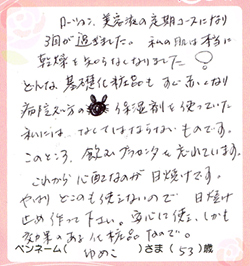 ローション、美容液の定期コースになり
3回が過ぎました。私の肌は本当に
乾燥を知らなくなりました
どんな基礎化粧品もすぐ赤くなり
病院処方の保湿剤を使っていた
私には なくてはならないものです。
このところ、飲むプラセンタも忘れています。
これから心配なのが日焼けです。
やはりどこのも使えないので 日焼け
止め作って下さい。安心に使え、しかも
効果のある化粧品なので。
ペンネーム(ゆめこ)さま(53)歳